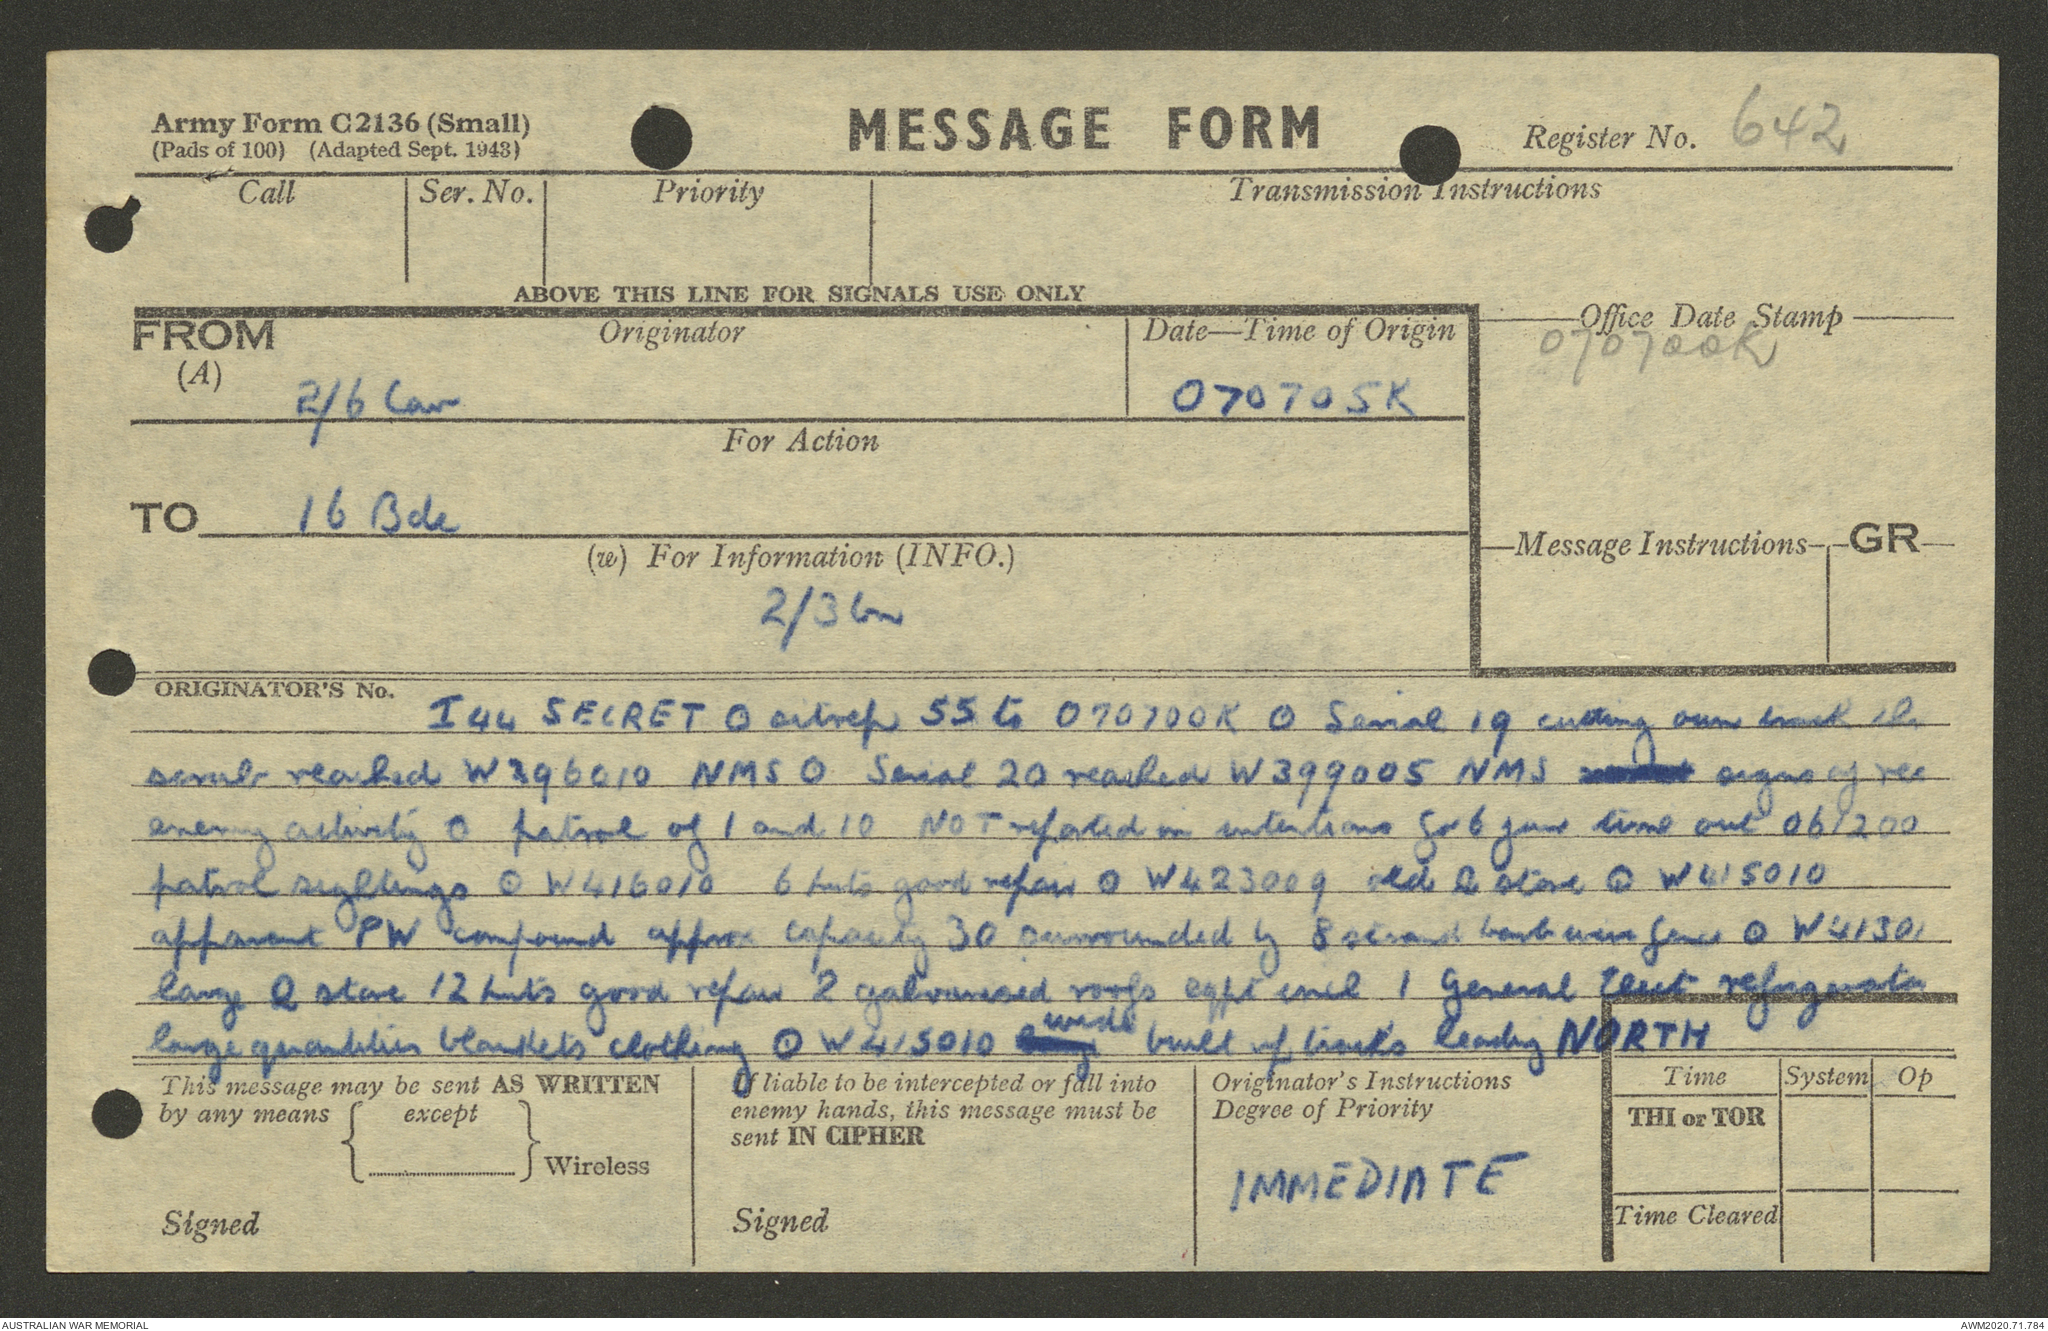 Army Form C2136 (Small)
(Pads of 100) (Adapted Sept. 1943)
MESSAGE FORM
Register No. 642
Call Ser. No. Priority Transmission Instructions
ABOVE THIS LINE FOR SIGNALS USE ONLY
FROM
(A)
Originator
2/6 Cav
Date—Time of Origin
070705K
Office Date Stamp
070700K
For Action
TO 16 Bde
(w) For Information (INFO.)
2/3 bn
Message Instructions GR
ORIGINATOR'S No.
I 44 SECRET O sitrep 55 to 070700K O Serial 19 cutting own track
scrub reached W396010 NMS O Serial 20 reached W399005 NMS signs of rec
enemy activity O patrol of 1 and 10 NOT reported in intentions for 6 Jun time out 061200
patrol sightings O W416010 6 huts good repair O W423009 old Q store O W415010
apparent PW compound approx capacity 30 surrounded by 8 strand barb wire fence O W41301
large Q store 12 huts good repair 2 galvanised roofs eqpt incl 1 General Elect refrigerator
large quantities blankets clothing O W415010 wide built up tracks leading NORTH
This message may be sent AS WRITTEN
by any means except
Wireless
Signed
If liable to be intercepted or fall into
enemy hands, this message must be
sent IN CIPHER
Signed
Originator's Instructions
Degree of Priority
IMMEDIATE
Time System Op
THI or TOR
Time Cleared
AUSTRALIAN WAR MEMORIAL
AWM2020.71.784